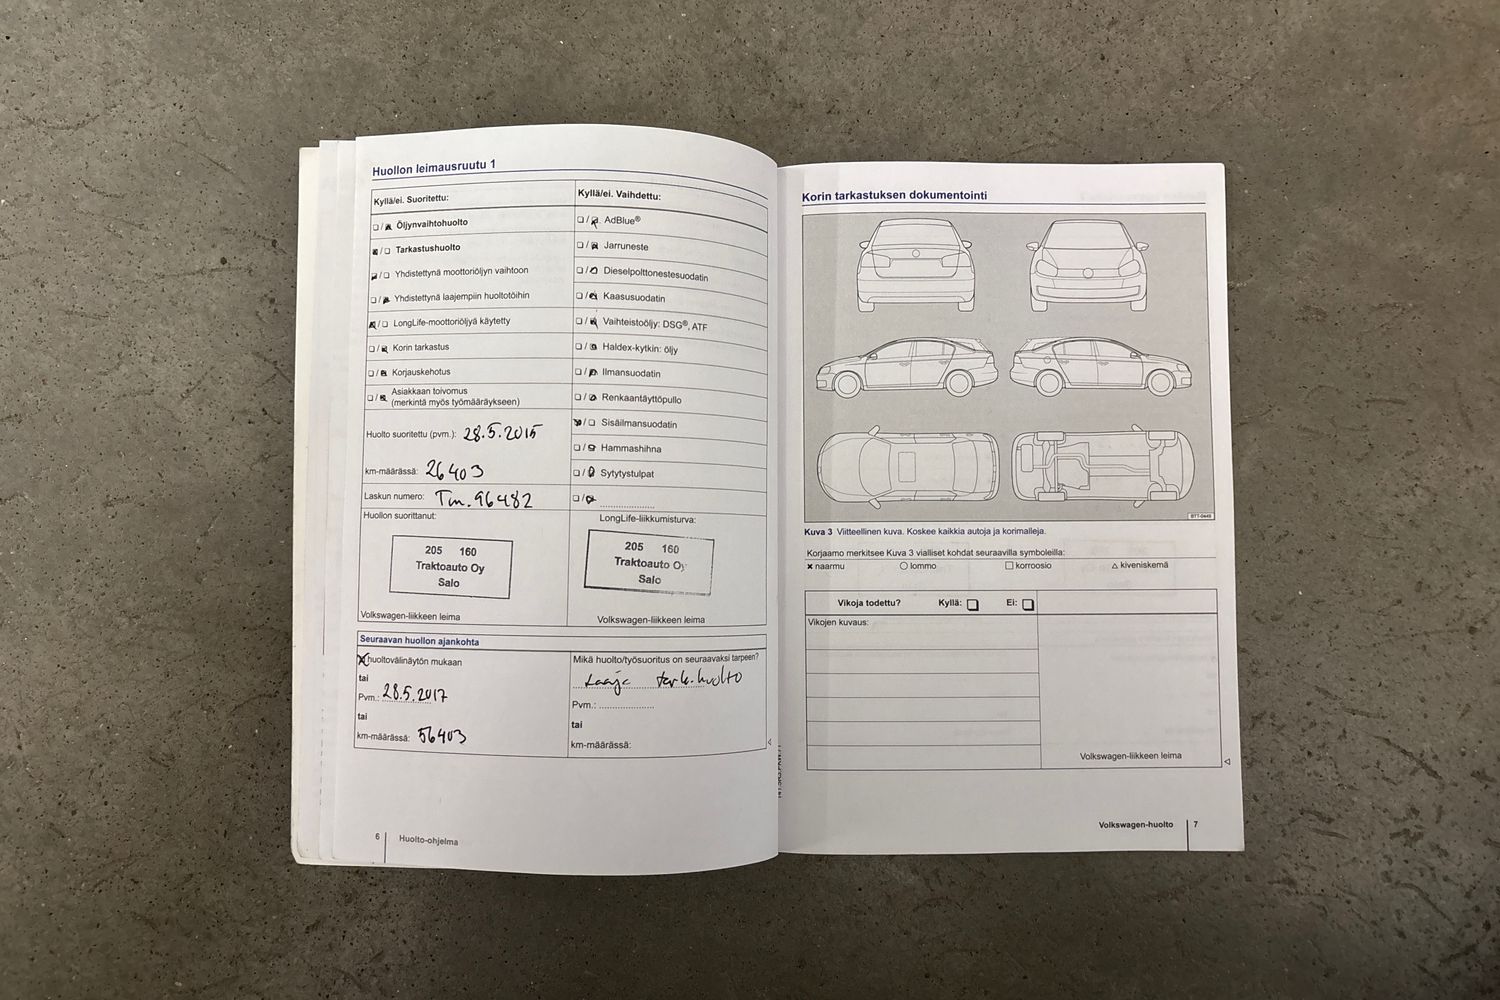 Huollon leimausruutu 1
Kyllä/ei. Suoritettu:
☐ / ☒ Öljynvaihtohuolto
☒ / ☐ Tarkastushuolto
☒ / ☐ Yhdistettynä moottoriöljyn vaihtoon
☐ / ☒ Yhdistettynä laajempiin huoltotöihin
☒ / ☐ LongLife-moottoriöljyä käytetty
☐ / ☒ Korin tarkastus
☐ / ☒ Korjauskehotus
☐ / ☒ Asiakkaan toivomus
(merkintä myös työmääräykseen)
Huolto suoritettu (pvm.): 28.5.2015
km-määrässä: 26403
Laskun numero: Tm. 96482
Huollon suorittanut:
205 160
Traktoauto Oy
Salo
Volkswagen-liikkeen leima
Kyllä/ei. Vaihdettu:
☐ / ☒ AdBlue®
☐ / ☒ Jarruneste
☐ / ☒ Dieselpolttonestesuodatin
☐ / ☒ Kaasusuodatin
☐ / ☒ Vaihteistoöljy: DSG®, ATF
☐ / ☒ Haldex-kytkin: öljy
☐ / ☒ Ilmansuodatin
☐ / ☒ Renkaantäyttöpullo
☒ / ☐ Sisäilmansuodatin
☐ / ☒ Hammashihna
☐ / ☒ Sytytystulpat
☐ / ☒ ....................
LongLife-liikkumisturva:
205 160
Traktoauto Oy
Salo
Volkswagen-liikkeen leima
Seuraavan huollon ajankohta
☒ huoltovälinäytön mukaan
tai
Pvm.: 28.5.2017
tai
km-määrässä: 56403
Mikä huolto/työsuoritus on seuraavaksi tarpeen?
Laaja tark.huolto
Pvm.: ....................
tai
km-määrässä:
6 Huolto-ohjelma
Korin tarkastuksen dokumentointi
BTT-0449
Kuva 3 Viitteellinen kuva. Koskee kaikkia autoja ja korimalleja.
Korjaamo merkitsee Kuva 3 vialliset kohdat seuraavilla symboleilla:
✕ naarmu ○ lommo □ korroosio △ kiveniskemä
Vikoja todettu? Kyllä: ☐ Ei: ☐
Vikojen kuvaus:
Volkswagen-liikkeen leima
Volkswagen-huolto 7